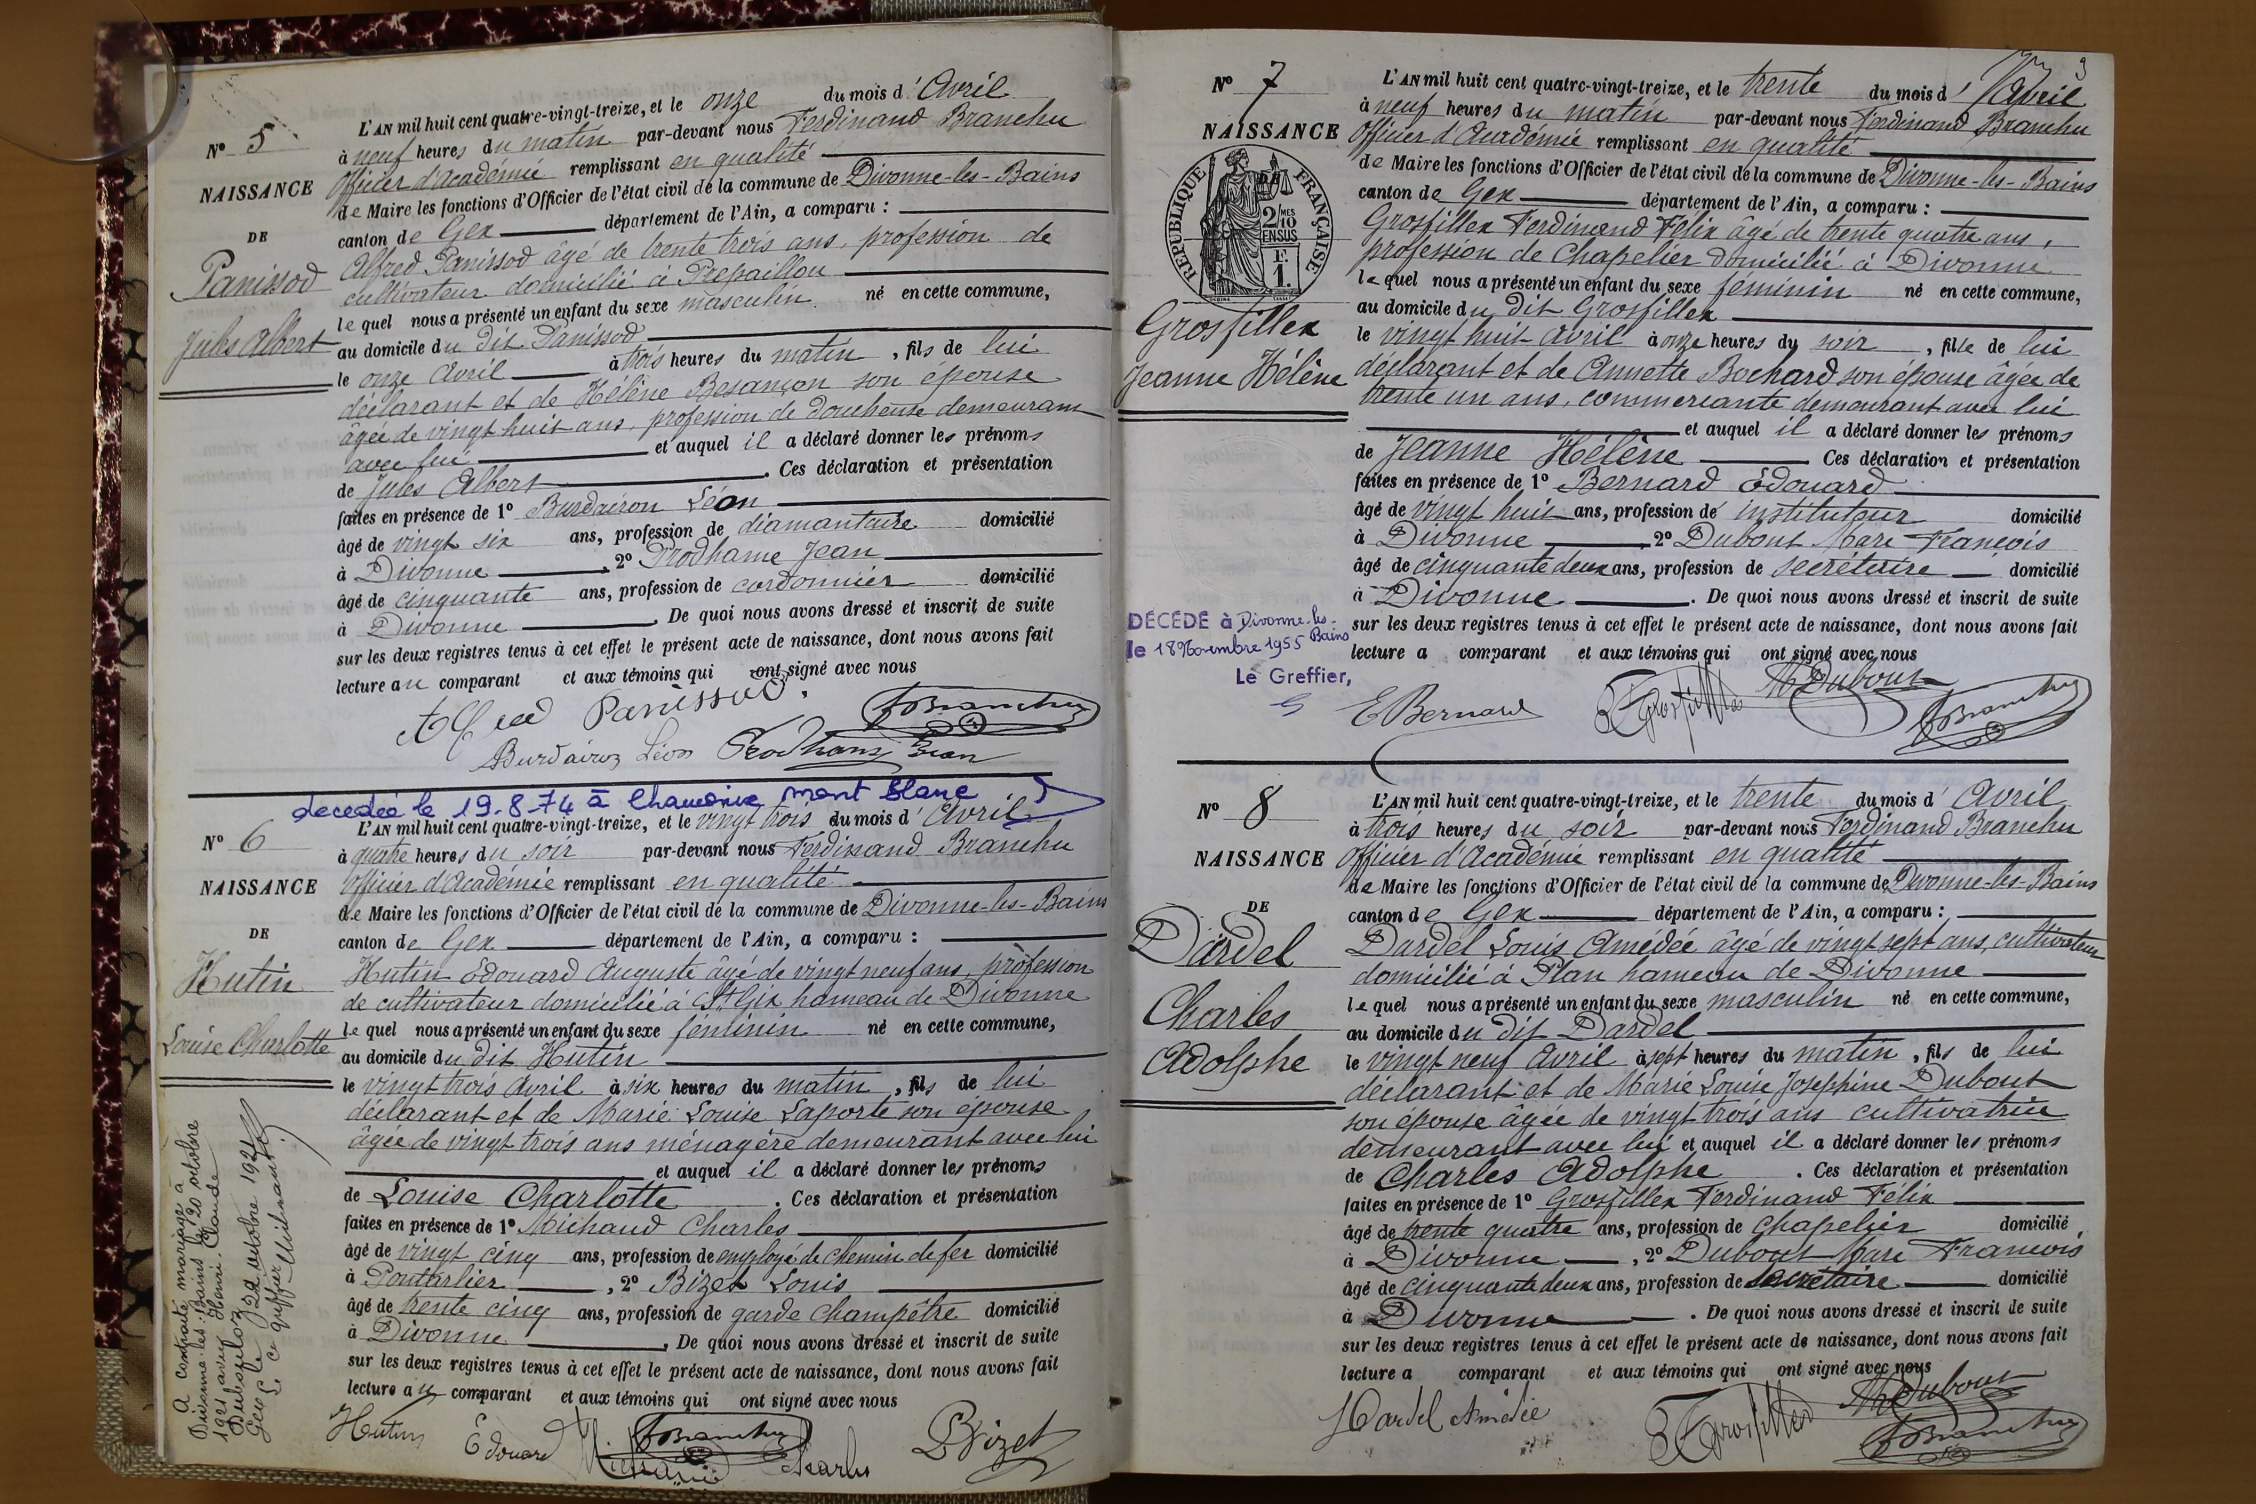 N° 5
NAISSANCE
DE
Panissod
Jules Albert
L'AN mil huit cent quatre-vingt-treize, et le onze du mois d'Avril
à neuf heures du matin par-devant nous Ferdinand Branchu
Officier d'Académie remplissant en qualité
de Maire les fonctions d'Officier de l'état civil de la commune de Divonne-les-Bains
canton de Gex département de l'Ain, a comparu :
Alfred Panissod âgé de trente trois ans, profession de
cultivateur domicilié à Prepaillou
le quel nous a présenté un enfant du sexe masculin né en cette commune,
au domicile du dit Panissod
le onze Avril à trois heures du matin, fils de lui
déclarant et de Hélène Besançon son épouse
âgée de vingt huit ans, profession de doucheuse demeurant
avec lui et auquel il a déclaré donner les prénoms
de Jules Albert. Ces déclaration et présentation
faites en présence de 1° Burdairon Léon
âgé de vingt six ans, profession de diamantaire domicilié
à Divonne, 2° Prodhame Jean
âgé de cinquante ans, profession de cordonnier domicilié
à Divonne. De quoi nous avons dressé et inscrit de suite
sur les deux registres tenus à cet effet le présent acte de naissance, dont nous avons fait
lecture au comparant et aux témoins qui ont signé avec nous
Alfred Panissod. FBranchu
Burdairon Léon Prodhame Jean
decedée le 19-8-74 à Chamonix mont Blanc
N° 6
NAISSANCE
DE
Hutin
Louise Charlotte
A contracté mariage à
Divonne-les-Bains le 20 octobre
1921 avec Henri Claude
Dubsfiloz
Gex le 22 octobre 1921
Le greffier
L'AN mil huit cent quatre-vingt-treize, et le vingt trois du mois d'Avril
à quatre heures du soir par-devant nous Ferdinand Branchu
Officier d'Académie remplissant en qualité
de Maire les fonctions d'Officier de l'état civil de la commune de Divonne-les-Bains
canton de Gex département de l'Ain, a comparu :
Hutin Edouard Auguste âgé de vingt neuf ans, profession
de cultivateur domicilié à St Gix hameau de Divonne
le quel nous a présenté un enfant du sexe féminin né en cette commune,
au domicile du dit Hutin
le vingt trois Avril à six heures du matin, fils de lui
déclarant et de Marie Louise Laporte son épouse
âgée de vingt trois ans ménagère demeurant avec lui
et auquel il a déclaré donner les prénoms
de Louise Charlotte. Ces déclaration et présentation
faites en présence de 1° Michaud Charles
âgé de vingt cinq ans, profession de employé de chemin de fer domicilié
à Pontarlier, 2° Bizet Louis
âgé de trente cinq ans, profession de garde champêtre domicilié
à Divonne. De quoi nous avons dressé et inscrit de suite
sur les deux registres tenus à cet effet le présent acte de naissance, dont nous avons fait
lecture au comparant et aux témoins qui ont signé avec nous
Hutin Edouard FBranchu Bizet
Michaud Charles
9
N° 7
NAISSANCE
RÉPUBLIQUE FRANÇAISE
2/10 MES
EN SUS
F.
1.
Grosfillex
Jeanne Hélène
DÉCÉDÉ à Divonne-les-Bains
le 18 Novembre 1955
Le Greffier,
L'AN mil huit cent quatre-vingt-treize, et le trente du mois d'Avril
à neuf heures du matin par-devant nous Ferdinand Branchu
Officier d'Académie remplissant en qualité
de Maire les fonctions d'Officier de l'état civil de la commune de Divonne-les-Bains
canton de Gex département de l'Ain, a comparu :
Grosfillex Ferdinand Félix âgé de trente quatre ans,
profession de Chapelier domicilié à Divonne
le quel nous a présenté un enfant du sexe féminin né en cette commune,
au domicile du dit Grosfillex
le vingt huit Avril à onze heures du soir, fille de lui
déclarant et de Annette Bochard son épouse âgée de
trente un ans, commerçante demeurant avec lui
et auquel il a déclaré donner les prénoms
de Jeanne Hélène Ces déclaration et présentation
faites en présence de 1° Bernard Edouard
âgé de vingt huit ans, profession de instituteur domicilié
à Divonne, 2° Dubout Marc François
âgé de cinquante deux ans, profession de secrétaire domicilié
à Divonne. De quoi nous avons dressé et inscrit de suite
sur les deux registres tenus à cet effet le présent acte de naissance, dont nous avons fait
lecture a comparant et aux témoins qui ont signé avec nous
EBernard FGrosfillex MDubout FBranchu
N° 8
NAISSANCE
DE
Dardel
Charles
Adolphe
L'AN mil huit cent quatre-vingt-treize, et le trente du mois d'Avril
à trois heures du soir par-devant nous Ferdinand Branchu
Officier d'Académie remplissant en qualité
de Maire les fonctions d'Officier de l'état civil de la commune de Divonne-les-Bains
canton de Gex département de l'Ain, a comparu :
Dardel Louis Amédée âgé de vingt sept ans, cultivateur
domicilié à Plan hameau de Divonne
le quel nous a présenté un enfant du sexe masculin né en cette commune,
au domicile du dit Dardel
le vingt neuf Avril à sept heures du matin, fils de lui
déclarant et de Marie Louise Joséphine Dubout
son épouse âgée de vingt trois ans cultivatrice
demeurant avec lui et auquel il a déclaré donner les prénoms
de Charles Adolphe. Ces déclaration et présentation
faites en présence de 1° Grosfillex Ferdinand Félix
âgé de trente quatre ans, profession de chapelier domicilié
à Divonne, 2° Dubout Marc François
âgé de cinquante deux ans, profession de secrétaire domicilié
à Divonne. De quoi nous avons dressé et inscrit de suite
sur les deux registres tenus à cet effet le présent acte de naissance, dont nous avons fait
lecture a comparant et aux témoins qui ont signé avec nous
Dardel Amédée FGrosfillex MDubout
FBranchu